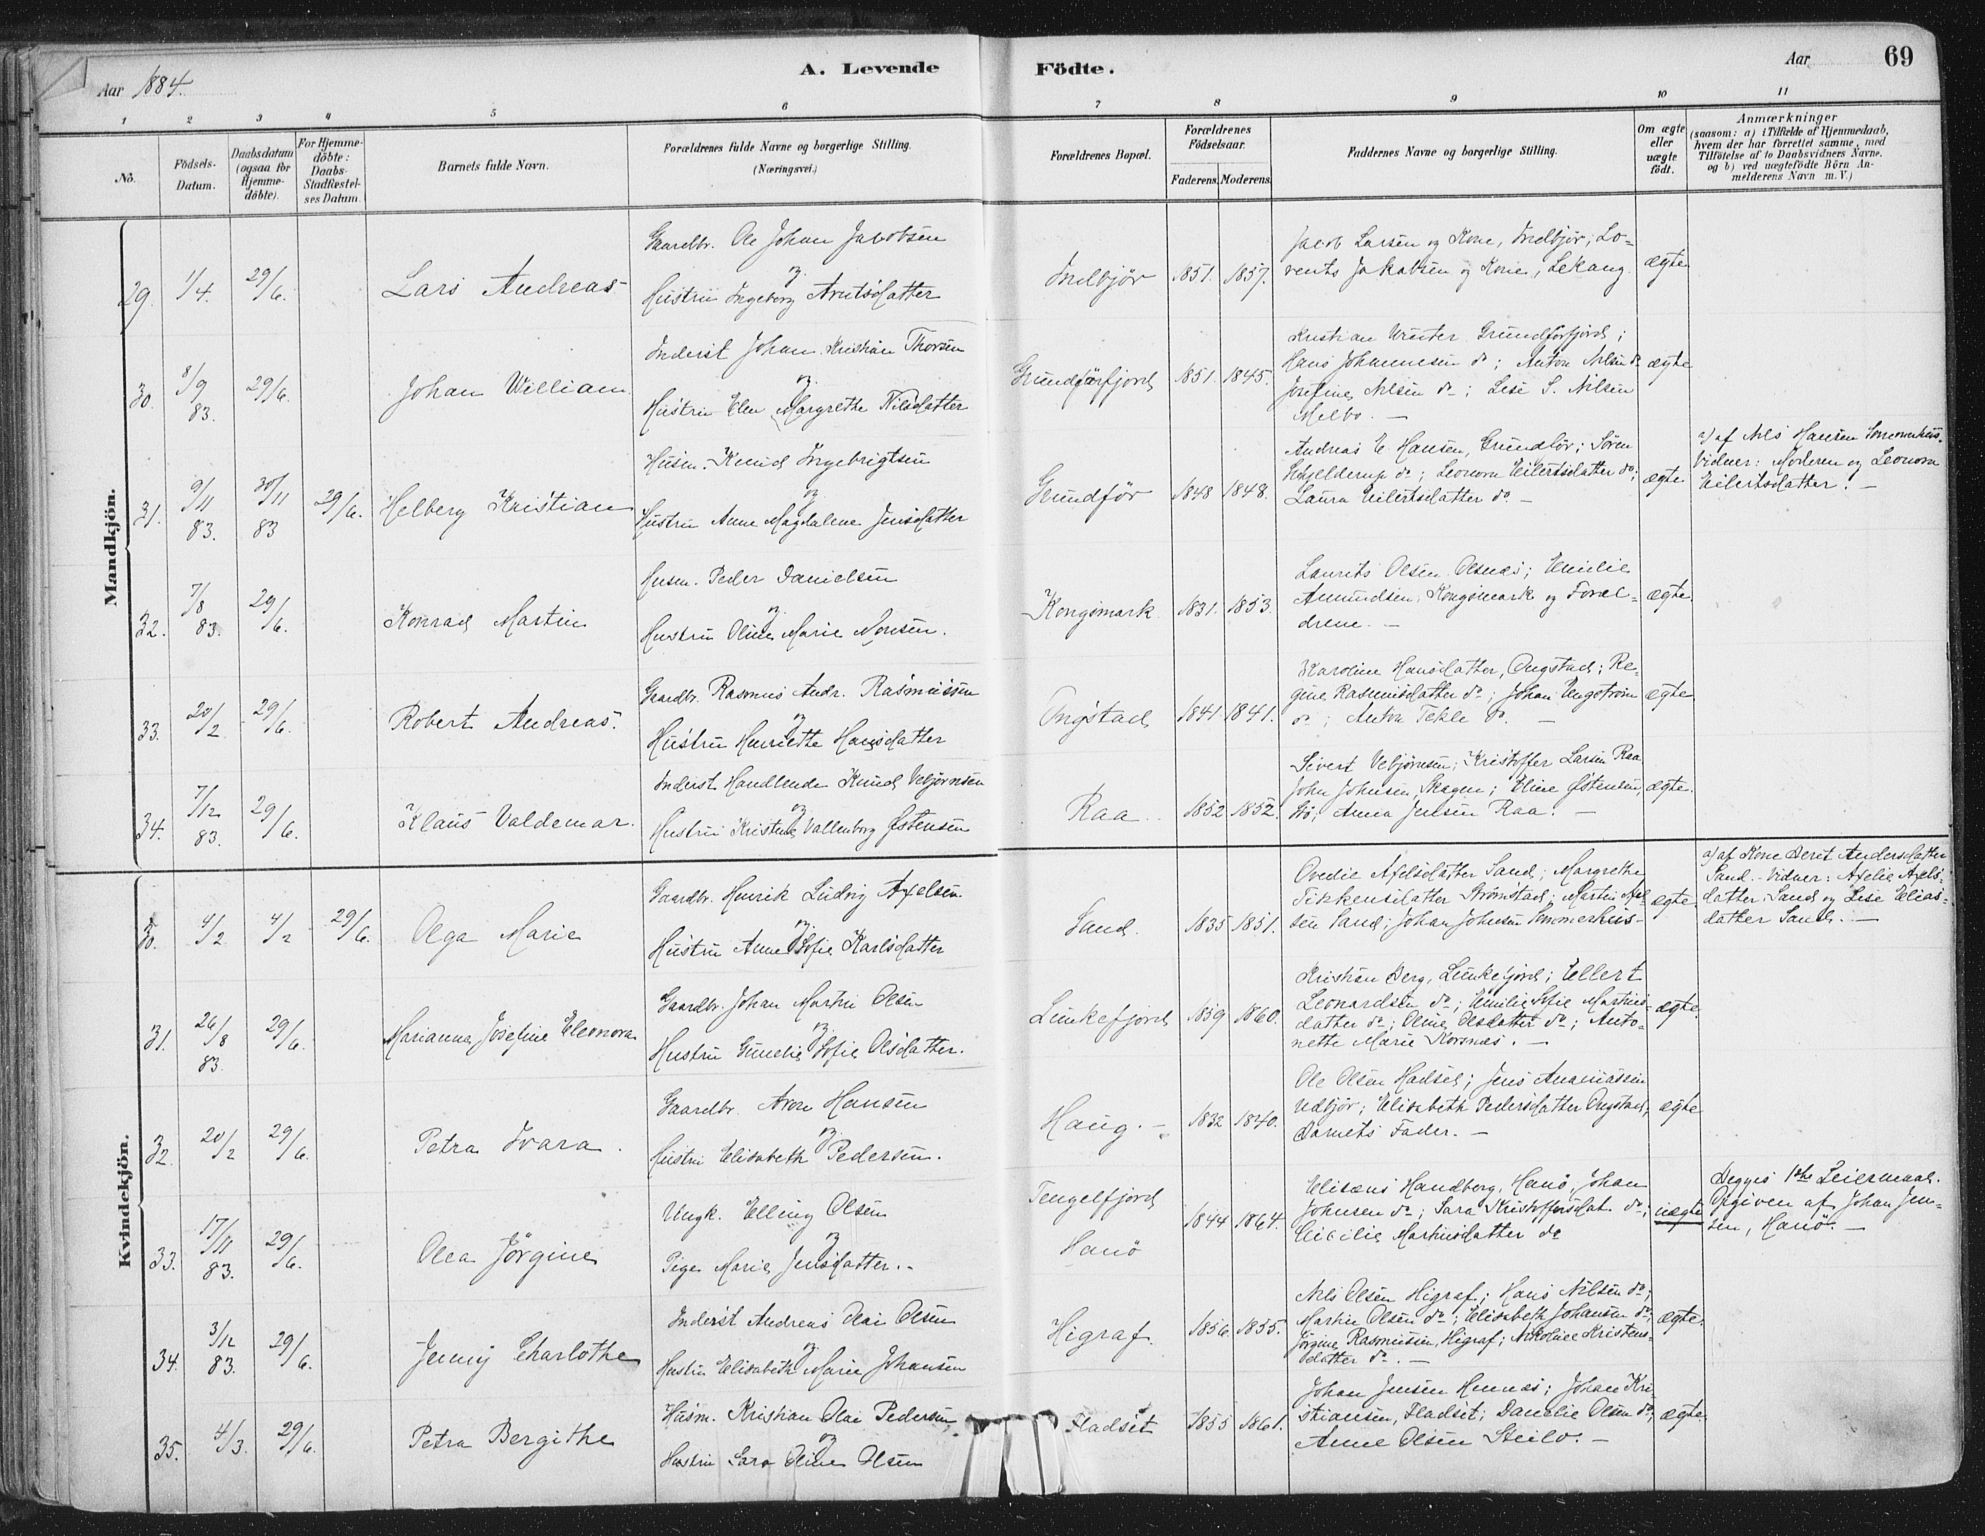 Aar 1884. A. Levende Födte. Aar 69
1 2 3 4 5 6 7 8 9 10 11
No.
Födsels-Datum.
Daabsdatum (ogsaa for Hjemme-döbte).
For Hjemme-döbte: Daabs-Stadfæstel-ses Datum.
Barnets fulde Navn.
Forældrenes fulde Navne og borgerlige Stilling. (Næringsvei.)
Forældrenes Bopæl.
Forældrenes Födselsaar. Faderens. Moderens.
Faddernes Navne og borgerlige Stilling.
Om ægte eller uægte födt.
Anmærkninger
(saasom: a) i Tilfælde af Hjemmedaab,
hvem der har forrettet samme, med
Tilföielse af to Daabsvidners Navne.
og b) ved uægtefödte Börn An-
melderens Navn m. V.)
Mandkjön.
29. 1/4. 29/6. Lars Andreas
Gaardbr. Ole Johan Jakobsen
og
Hustru Ingeborg Arntsdatter
Indbjør 1851. 1857.
Jacob Larsen og Kone, Indbjør; Lo-
rents Jakobsen og Kone, Lekang.
ægte
30. 8/9 83. 29/6. Johan William
Inderst Johan Kristian Thorsen
og
Hustru Elen Margrethe Nilsdatter
Grundförfjord 1851. 1845.
Kristian Winter Grundförfjord;
Hans Johannesen do; Anton Nilsen do
Josefine Nilsen do; Lise S. Nilsen
Melbo. —
ægte
31. 9/11 83. 30/11 83 29/6. Helberg Kristian
Husm. Knud Ingebrigtsen
og
Hustru Anne Magdalene Jensdatter
Grundför 1848 1848.
Andreas E Hansen, Grundför; Søren
Schjelderup do; Leonora Eilertsdatter do;
Laura Eilertsdatter do —
ægte
a) af Nils Hansen Sommerhus.
Vidner: Moderen og Leonora
Eilertsdatter. —
32. 7/8 83. 29/6. Konrad Martin
Husm. Peder Danielsen
og
Hustru Oline Marie Monsen.
Kongsmark 1831. 1853.
Laurits Olsen Olsnæs; Emilie
Amundsen, Kongsmark og Foræl-
drene. —
ægte
33. 20/2 29/6. Robert Andreas.
Gaardbr. Rasmus Andr. Rasmussen
og
Hustru Henriette Hansdatter
Ongstad 1841 1841.
Karoline Hansdatter, Ongstad; Re-
gine Rasmusdatter do; Johan Engström
do; Anton Tekle do. —
ægte
34. 7/12 83. 29/6. Klaus Valdemar.
Inderst Handlende Knud Vebjørnsen
og
Hustru Kristine Vallenborg Østensen
Raa 1852 1852.
Sivert Vebjørnsen; Kristoffer Larsen Raa
John Johnsen, Skagen; Eline Østensen,
Bø; Anna Jensen Raa. —
ægte.
Kvindekjön.
30. 4/2 4/2 29/6. Olga Marie
Gaardbr. Henrik Ludvig Axelsen
og
Hustru Anne Sofie Karlsdatter
Sand. 1835 1851.
Ovedie Axelsdatter Sand; Margrethe
Tekkensdatter Strömstad; Martin Axel-
sen Sand; Johan Johnsen Sommerhus-
ægte
a) af Kone Berit Andersdatter
Sand. - Vidner: Axelie Axels-
datter Sand og Lise Elias-
datter Sand. —
31. 26/8 83. 29/6. Marianna Josefine Eleonora
Gaardbr. Johan Martin Olsen
og
Hustru Gunelie Sofie Olsdatter.
Lunkefjord 1859 1860.
Kristian Berg, Lunkefjord; Ellert
Leonardsen do; Emilie Sofie Martins-
datter do; Oline Olsdatter do; Anto-
nette Marie Korsnæs. —
ægte.
32. 20/2 29/6. Petra Ivara.
Gaardbr. Aron Hansen
og
Hustru Elisabeth Pedersen.
Haug. — 1832 1840.
Ole Olsen Hadsel; Jens Ananiassen
Udbjør; Elisabeth Pedersdatter Ongstad,
Barnets Fader. —
ægte
33. 17/11 83. 29/6. Olea Jörgine
Ungk. Elling Olsen
og
Pige Marie Jensdatter. -
Tengelfjord
Hanö
1844 1864.
Elisæus Handberg, Hanö, Johan
Johnsen do; Sara Kristoffersdat. do;
Cicilie Martinsdatter do
uægte
Begges 1ste Leiermaal.
Opgiven af Johan Jen-
sen, Hanö. —
34. 3/12 83. 29/6. Jenny Charlothe
Inderst Andreas Olai Olsen
og
Hustru Elisabeth Marie Johansen
Higraf. 1856. 1855.
Nils Olsen Higraf; Hans Nilsen do;
Martin Olsen do; Elisabeth Johansen do;
Jörgine Rasmussen, Higraf; Nikoline Kristens-
datter do. —
ægte.
35. 4/3. 29/6. Petra Bergithe
Husm. Kristian Olai Pedersen
og
Hustru Sara Oline Olsen
Fladset 1855 1861.
Johan Jensen Hennæs; Johan Kri-
stiansen, Fladset; Danelie Olsen do;
Anne Olsen Steilo. —
ægte.